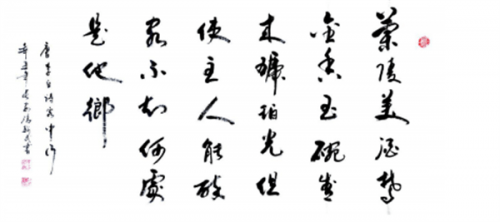 蘭陵美酒鬱
金香玉碗盛
来琥珀光但
使主人能醉
客不知何處
是他鄉
唐李白詩客中作
辛丑年
書